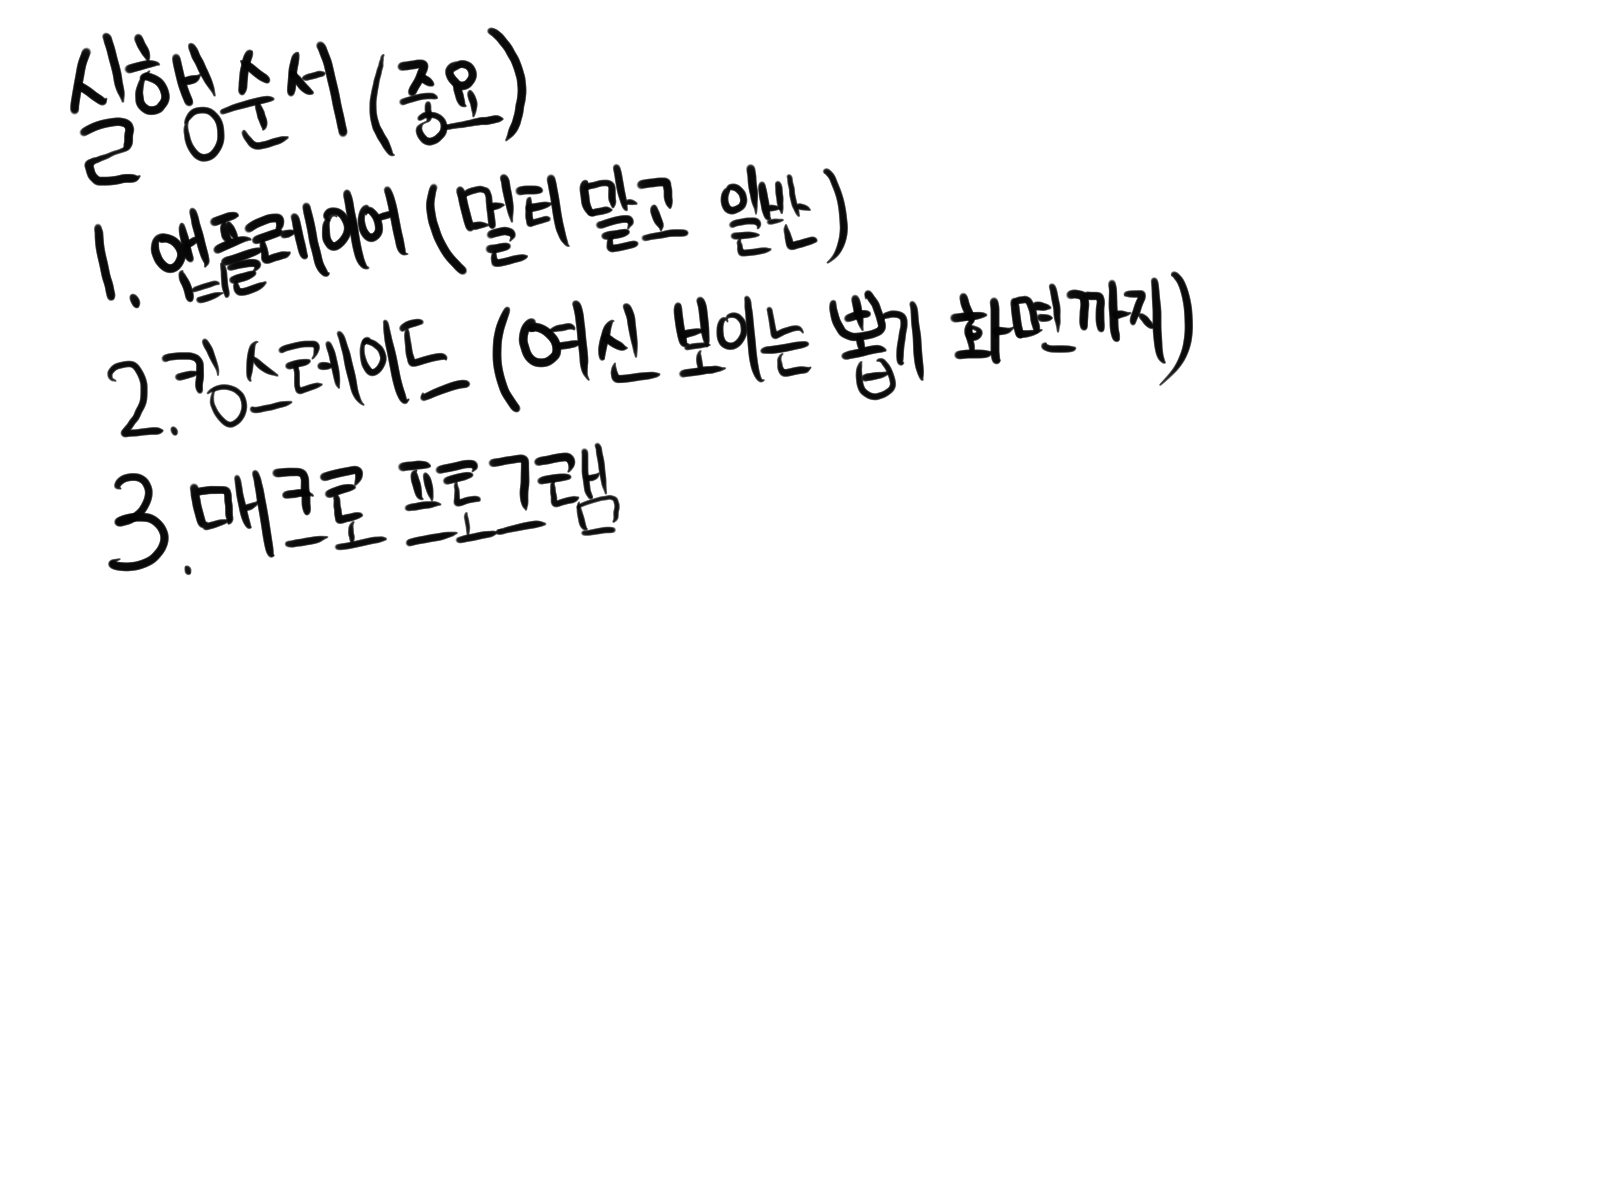 실행순서 (중요)
1. 앱플레이어 (멀티 말고 일반)
2. 킹스레이드 (여신 보이는 뽑기 화면까지)
3. 매크로 프로그램